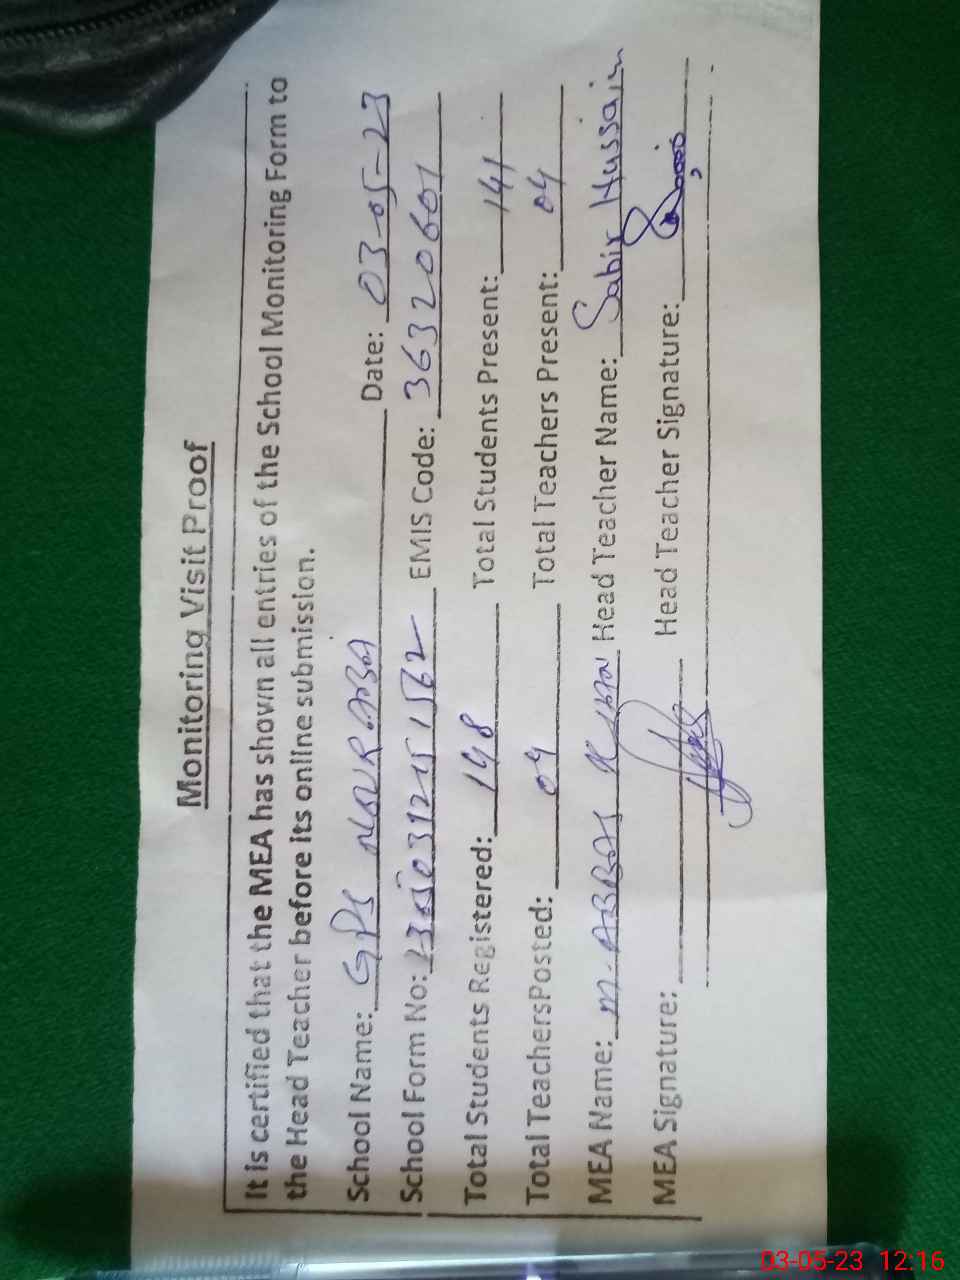 Monitoring Visit Proof
It is certified that the MEA has shown all entries of the School Monitoring Form to
the Head Teacher before its online submission.
School Name: GPS Date: 03-05-23
School Form No: EMIS Code: 36320601
Total Students Registered: 148 Total Students Present: 141
Total Teachers Posted: 04 Total Teachers Present: 04
MEA Name: M. ABBAS Head Teacher Name: Sabir Hussain
MEA Signature: Head Teacher Signature:
03-05-23 12:16